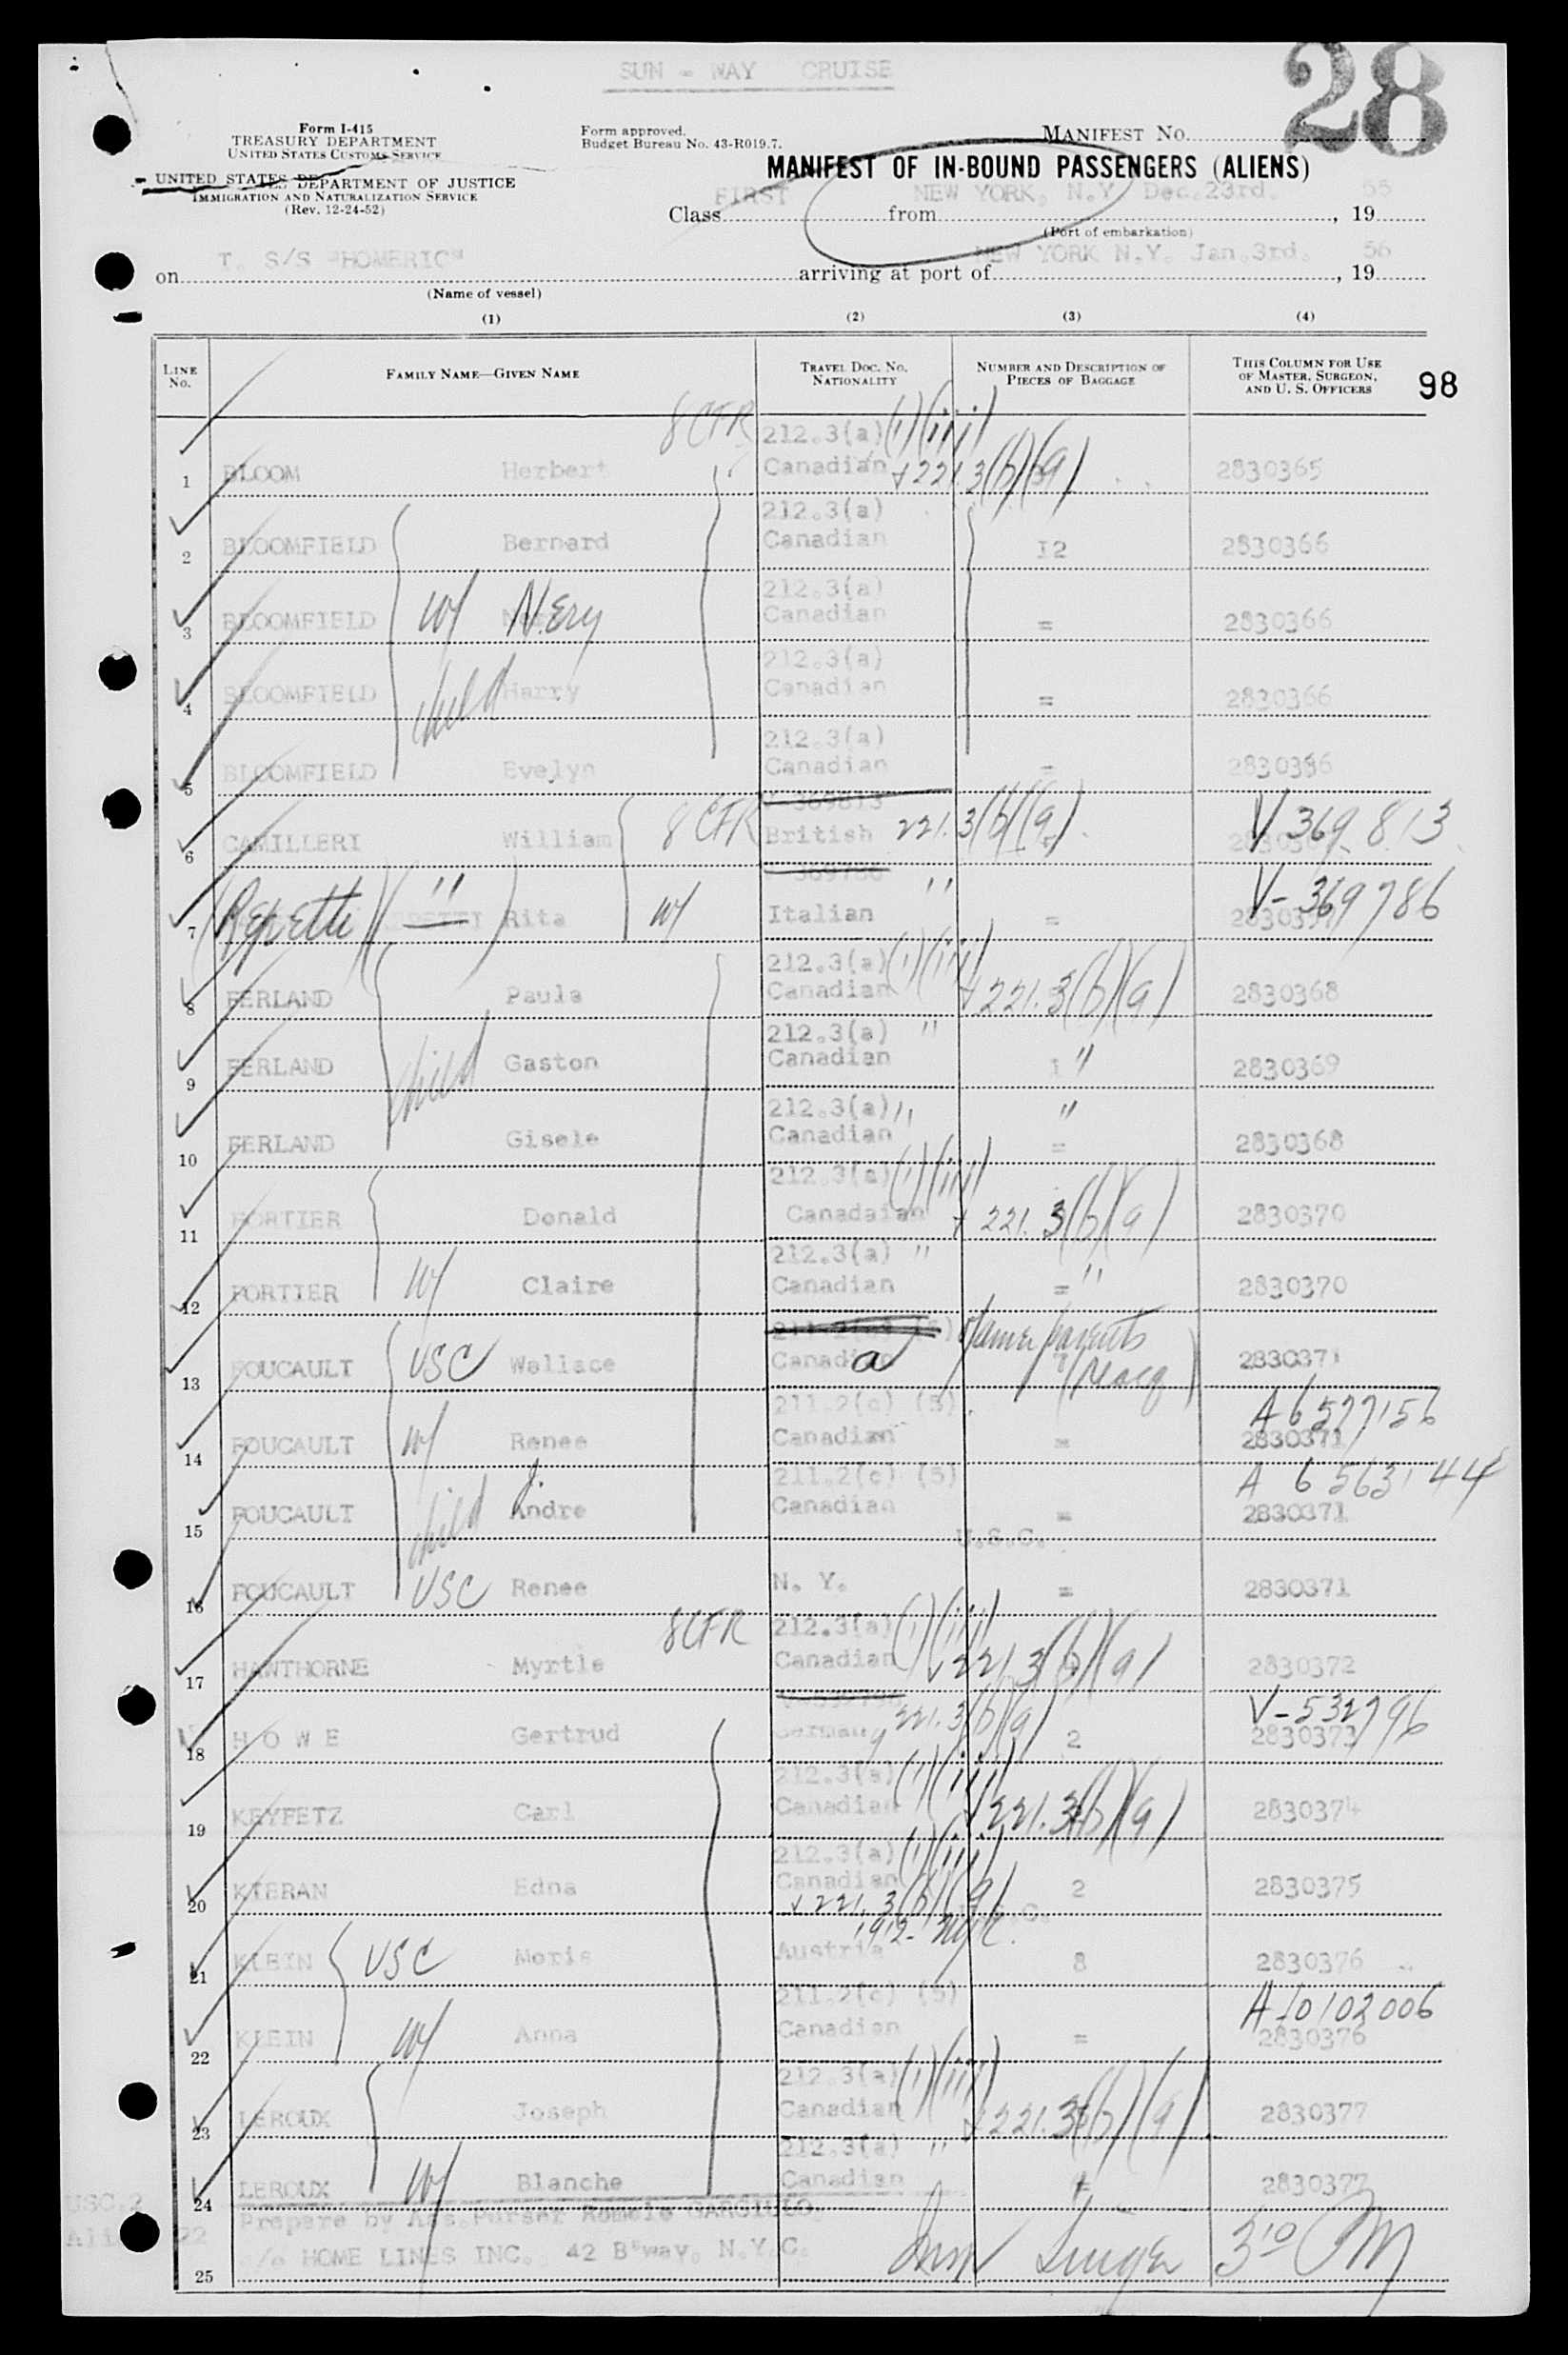 SUN - WAY CRUISE
28
Form I-415
TREASURY DEPARTMENT
UNITED STATES CUSTOMS SERVICE
UNITED STATES DEPARTMENT OF JUSTICE
IMMIGRATION AND NATURALIZATION SERVICE
(Rev. 12-24-52)
Form approved.
Budget Bureau No. 43-R019.7.
MANIFEST NO.
MANIFEST OF IN-BOUND PASSENGERS (ALIENS)
Class FIRST from NEW YORK, N.Y. Dec.23rd. , 19 55
(Port of embarkation)
on T. S/S "HOMERIC" arriving at port of NEW YORK N.Y. Jan.3rd. , 19 56
(Name of vessel)
(1) (2) (3) (4)
LINE No. FAMILY NAME—GIVEN NAME TRAVEL DOC. NO. NATIONALITY NUMBER AND DESCRIPTION OF PIECES OF BAGGAGE THIS COLUMN FOR USE OF MASTER, SURGEON, AND U. S. OFFICERS 98
8 CFR 212.3(a) (i)(iii)
1 BLOOM Herbert Canadian + 221.3(b)(9) 2830365
212.3(a)
2 BLOOMFIELD Bernard Canadian 12 2830366
212.3(a)
3 BLOOMFIELD w/ Nery Canadian = 2830366
212.3(a)
4 BLOOMFIELD child Harry Canadian = 2830366
212.3(a)
5 BLOOMFIELD Evelyn Canadian = 2830366
V-369813
6 CAMILLERI William 8 CFR British 221.3(b)(9) V 369813
369786
7 (Repetti) ( " ) Rita w/ Italian " = V-369786
212.3(a) (i)(iii)
8 FERLAND Paula Canadian + 221.3(b)(9) 2830368
212.3(a) "
9 FERLAND child Gaston Canadian 1 " 2830369
212.3(a) " "
10 FERLAND Gisele Canadian = 2830368
212.3(a) (i)(iii)
11 FORTIER Donald Canadaian + 221.3(b)(9) 2830370
212.3(a) "
12 FORTIER w/ Claire Canadian = " 2830370
parents
13 FOUCAULT USC Wallace Canada 2830371
211.2(c) (5) A6577156
14 FOUCAULT w/ Renee Canadian = 2830371
211.2(c) (5) A 6563144
15 FOUCAULT child J. Andre Canadian = 2830371
U.S.C.
16 FOUCAULT USC Renee N. Y. = 2830371
8 CFR 212.3(a) (i)(iii)
17 HAWTHORNE Myrtle Canadian + 221.3(b)(9) 2830372
221.3(b)(9) V-532796
18 H O W E Gertrud Germany 2 2830373
212.3(a) (i)(iii)
19 KEYFETZ Carl Canadian + 221.3(b)(9) 2830374
212.3(a) (i)(iii)
20 KIERAN Edna Canadian 2 2830375
+ 221.3(b)(9)
1912-
21 KLEIN USC Moris Austria 8 2830376
211.2(c) (5) A-10102006
22 KLEIN w/ Anna Canadian = 2830376
212.3(a) (i)(iii)
23 LEROUX Joseph Canadian + 221.3(b)(9) 2830377
212.3(a) "
24 LEROUX w/ Blanche Canadian = 2830377
USC.2
Prepare by Ass.Purser Romeio GARGIULO.
22
c/o HOME LINES INC. 42 B'way. N.Y.C.
25